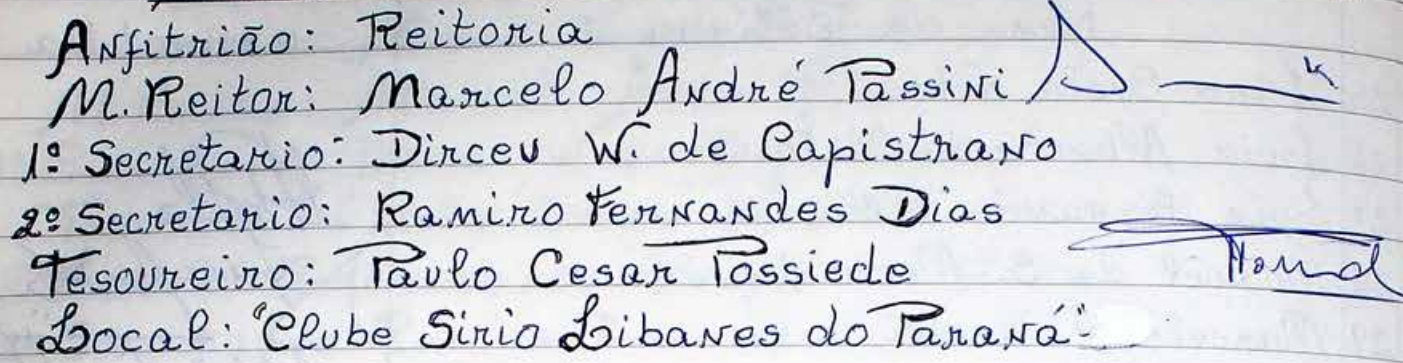 Anfitrião: Reitoria
M. Reitor: Marcelo André Passini
1º Secretario: Dirceu W. de Capistrano
2º Secretario: Ramiro Fernandes Dias
Tesoureiro: Paulo Cesar Possiede
Local: "Clube Sirio Libanes do Paraná"